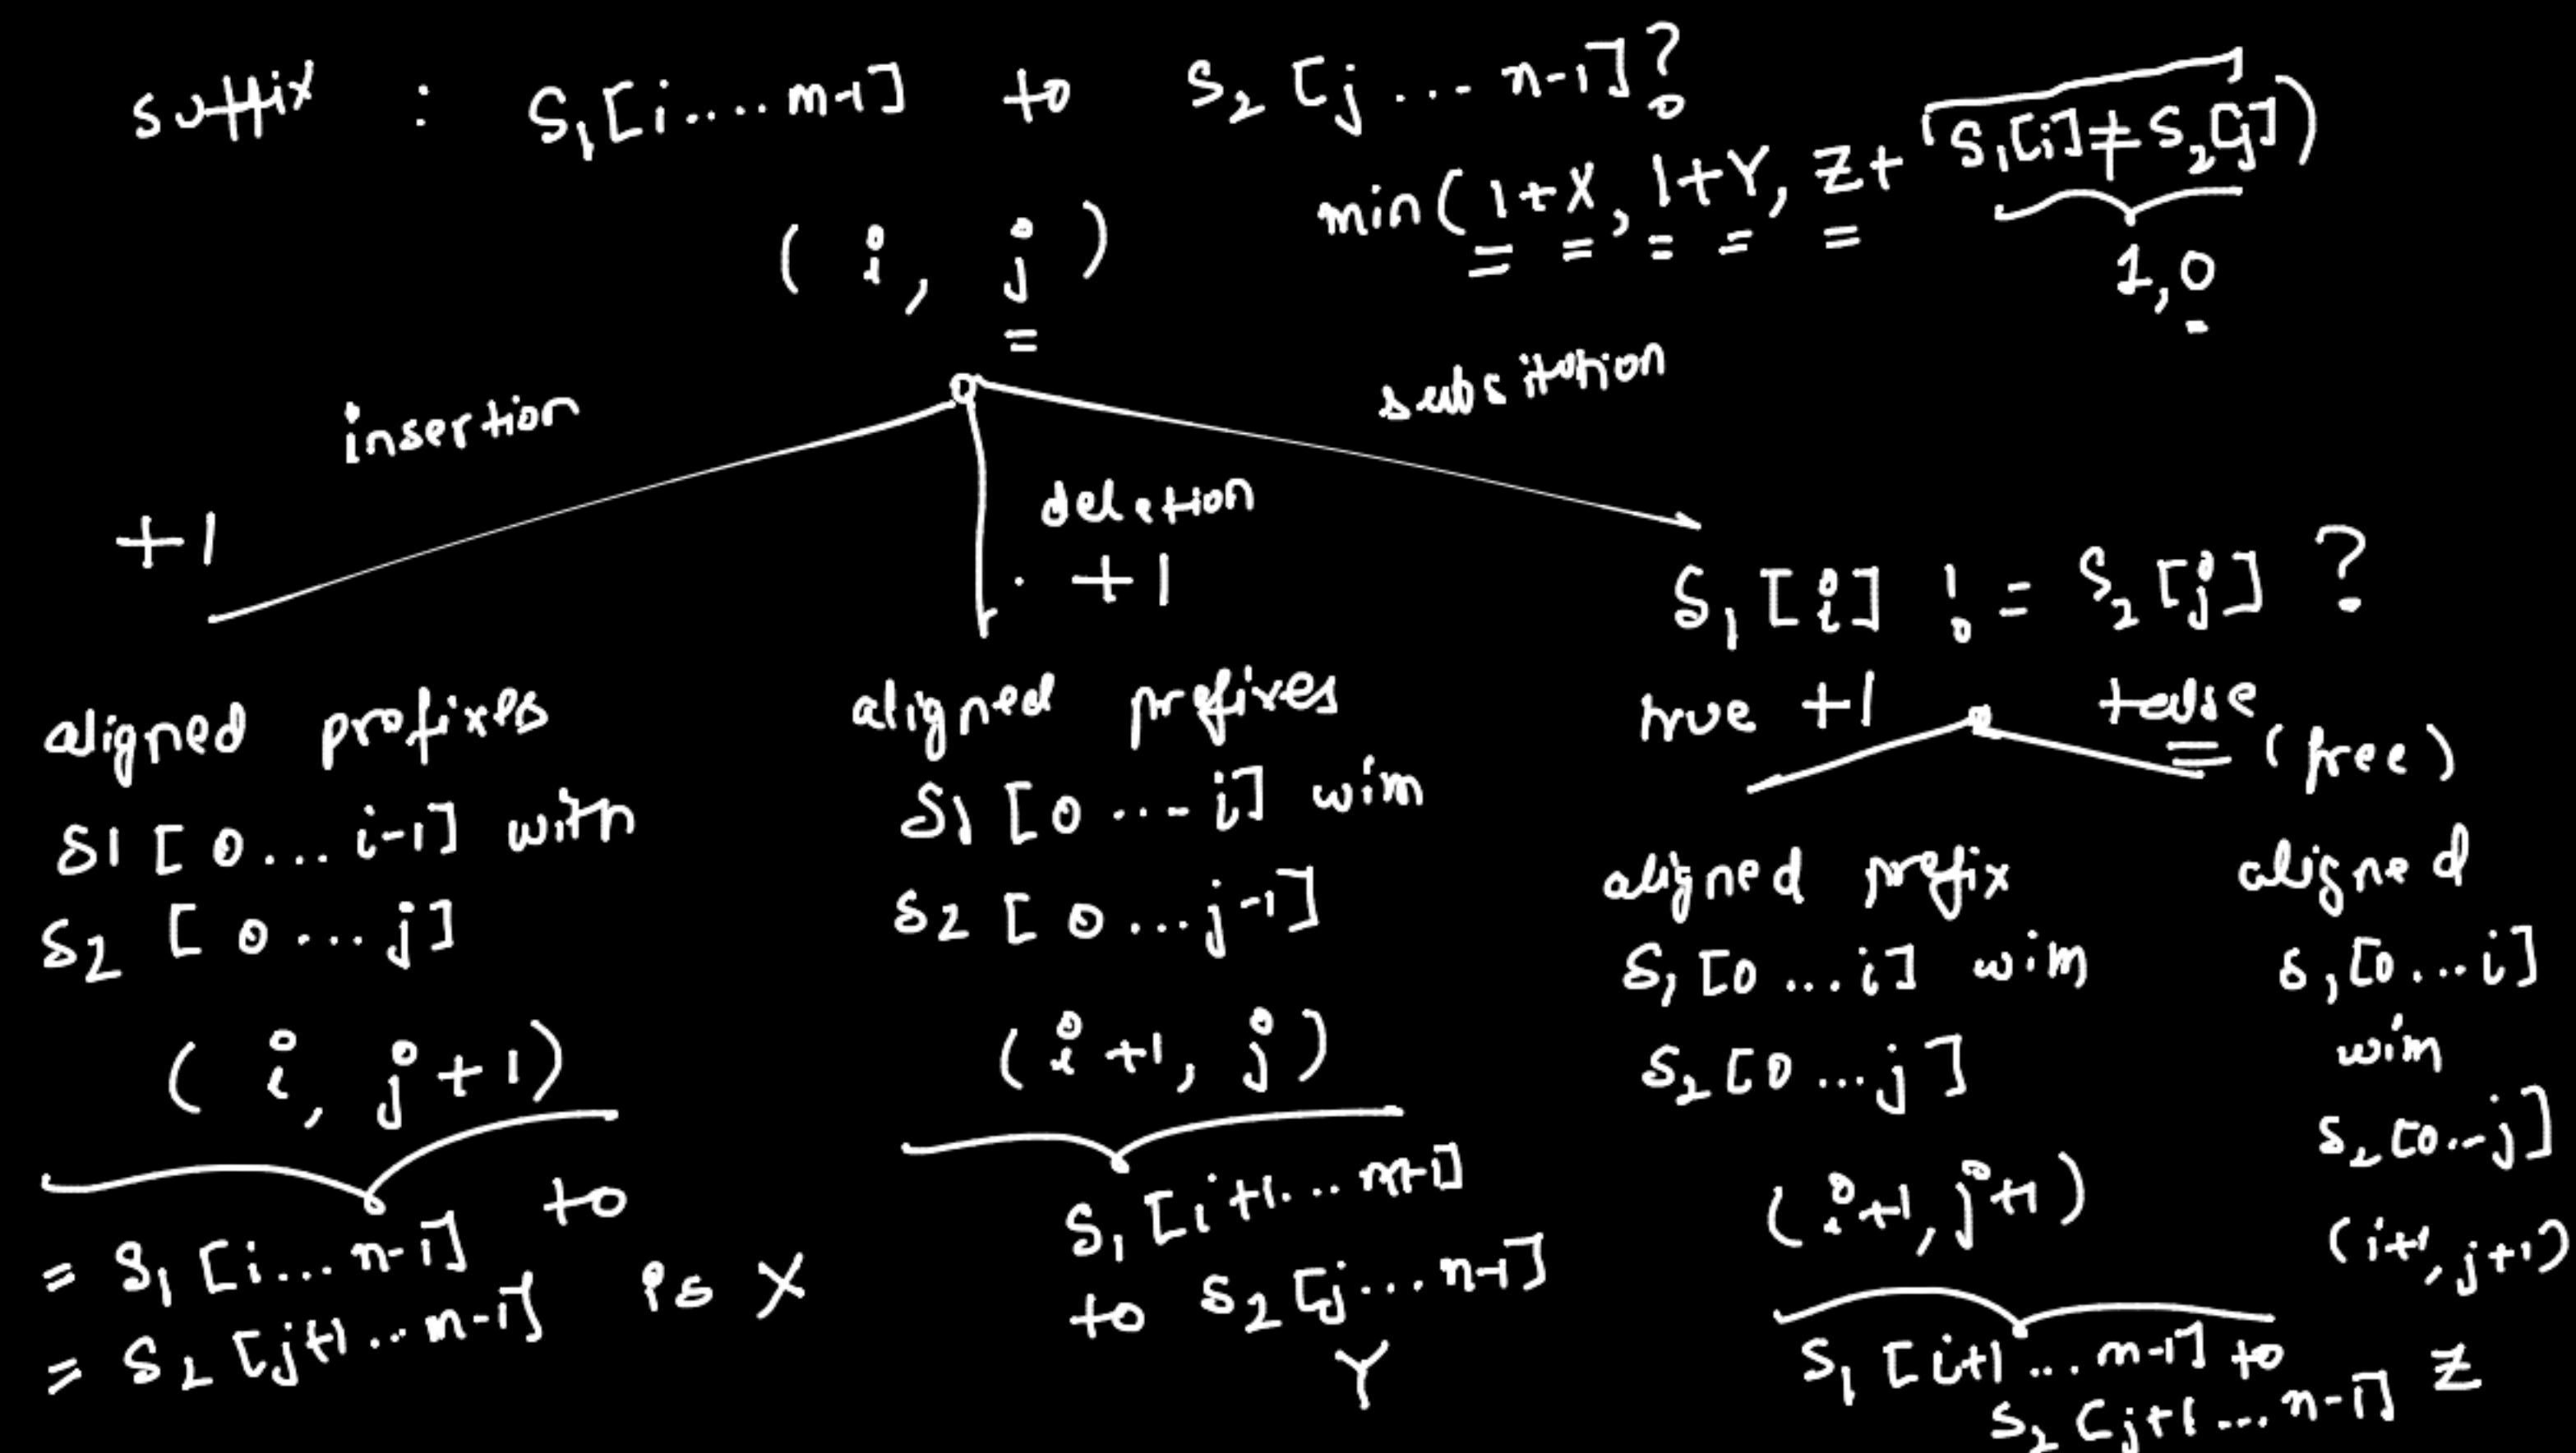 suffix : S₁[i.... m-1] to S₂[j... n-1]?
min(1+X, 1+Y, Z+(S₁[i]≠S₂[j])
1,0
(i, j)
insertion
+1
deletion
+1
subsitution
S₁[i] != S₂[j] ?
true +1
false (free)
aligned prefixes
S1[0... i-1] with
S2 [0...j]
(i, j+1)
= S₁[i... n-1] to
= S₂[j+1.. m-1] is X
aligned prefixes
S1[0...i] with
S2[0...j-1]
(i+1, j)
S₁[i+1... m-1]
to S₂[j...n-1]
Y
aligned prefix
S₁[0...i] with
S₂[0...j]
(i+1, j+1)
S₁[i+1...m-1] to
S₂[j+1...n-1] Z
aligned
S₁[0...i]
with
S₂[0..j]
(i+1, j+1)